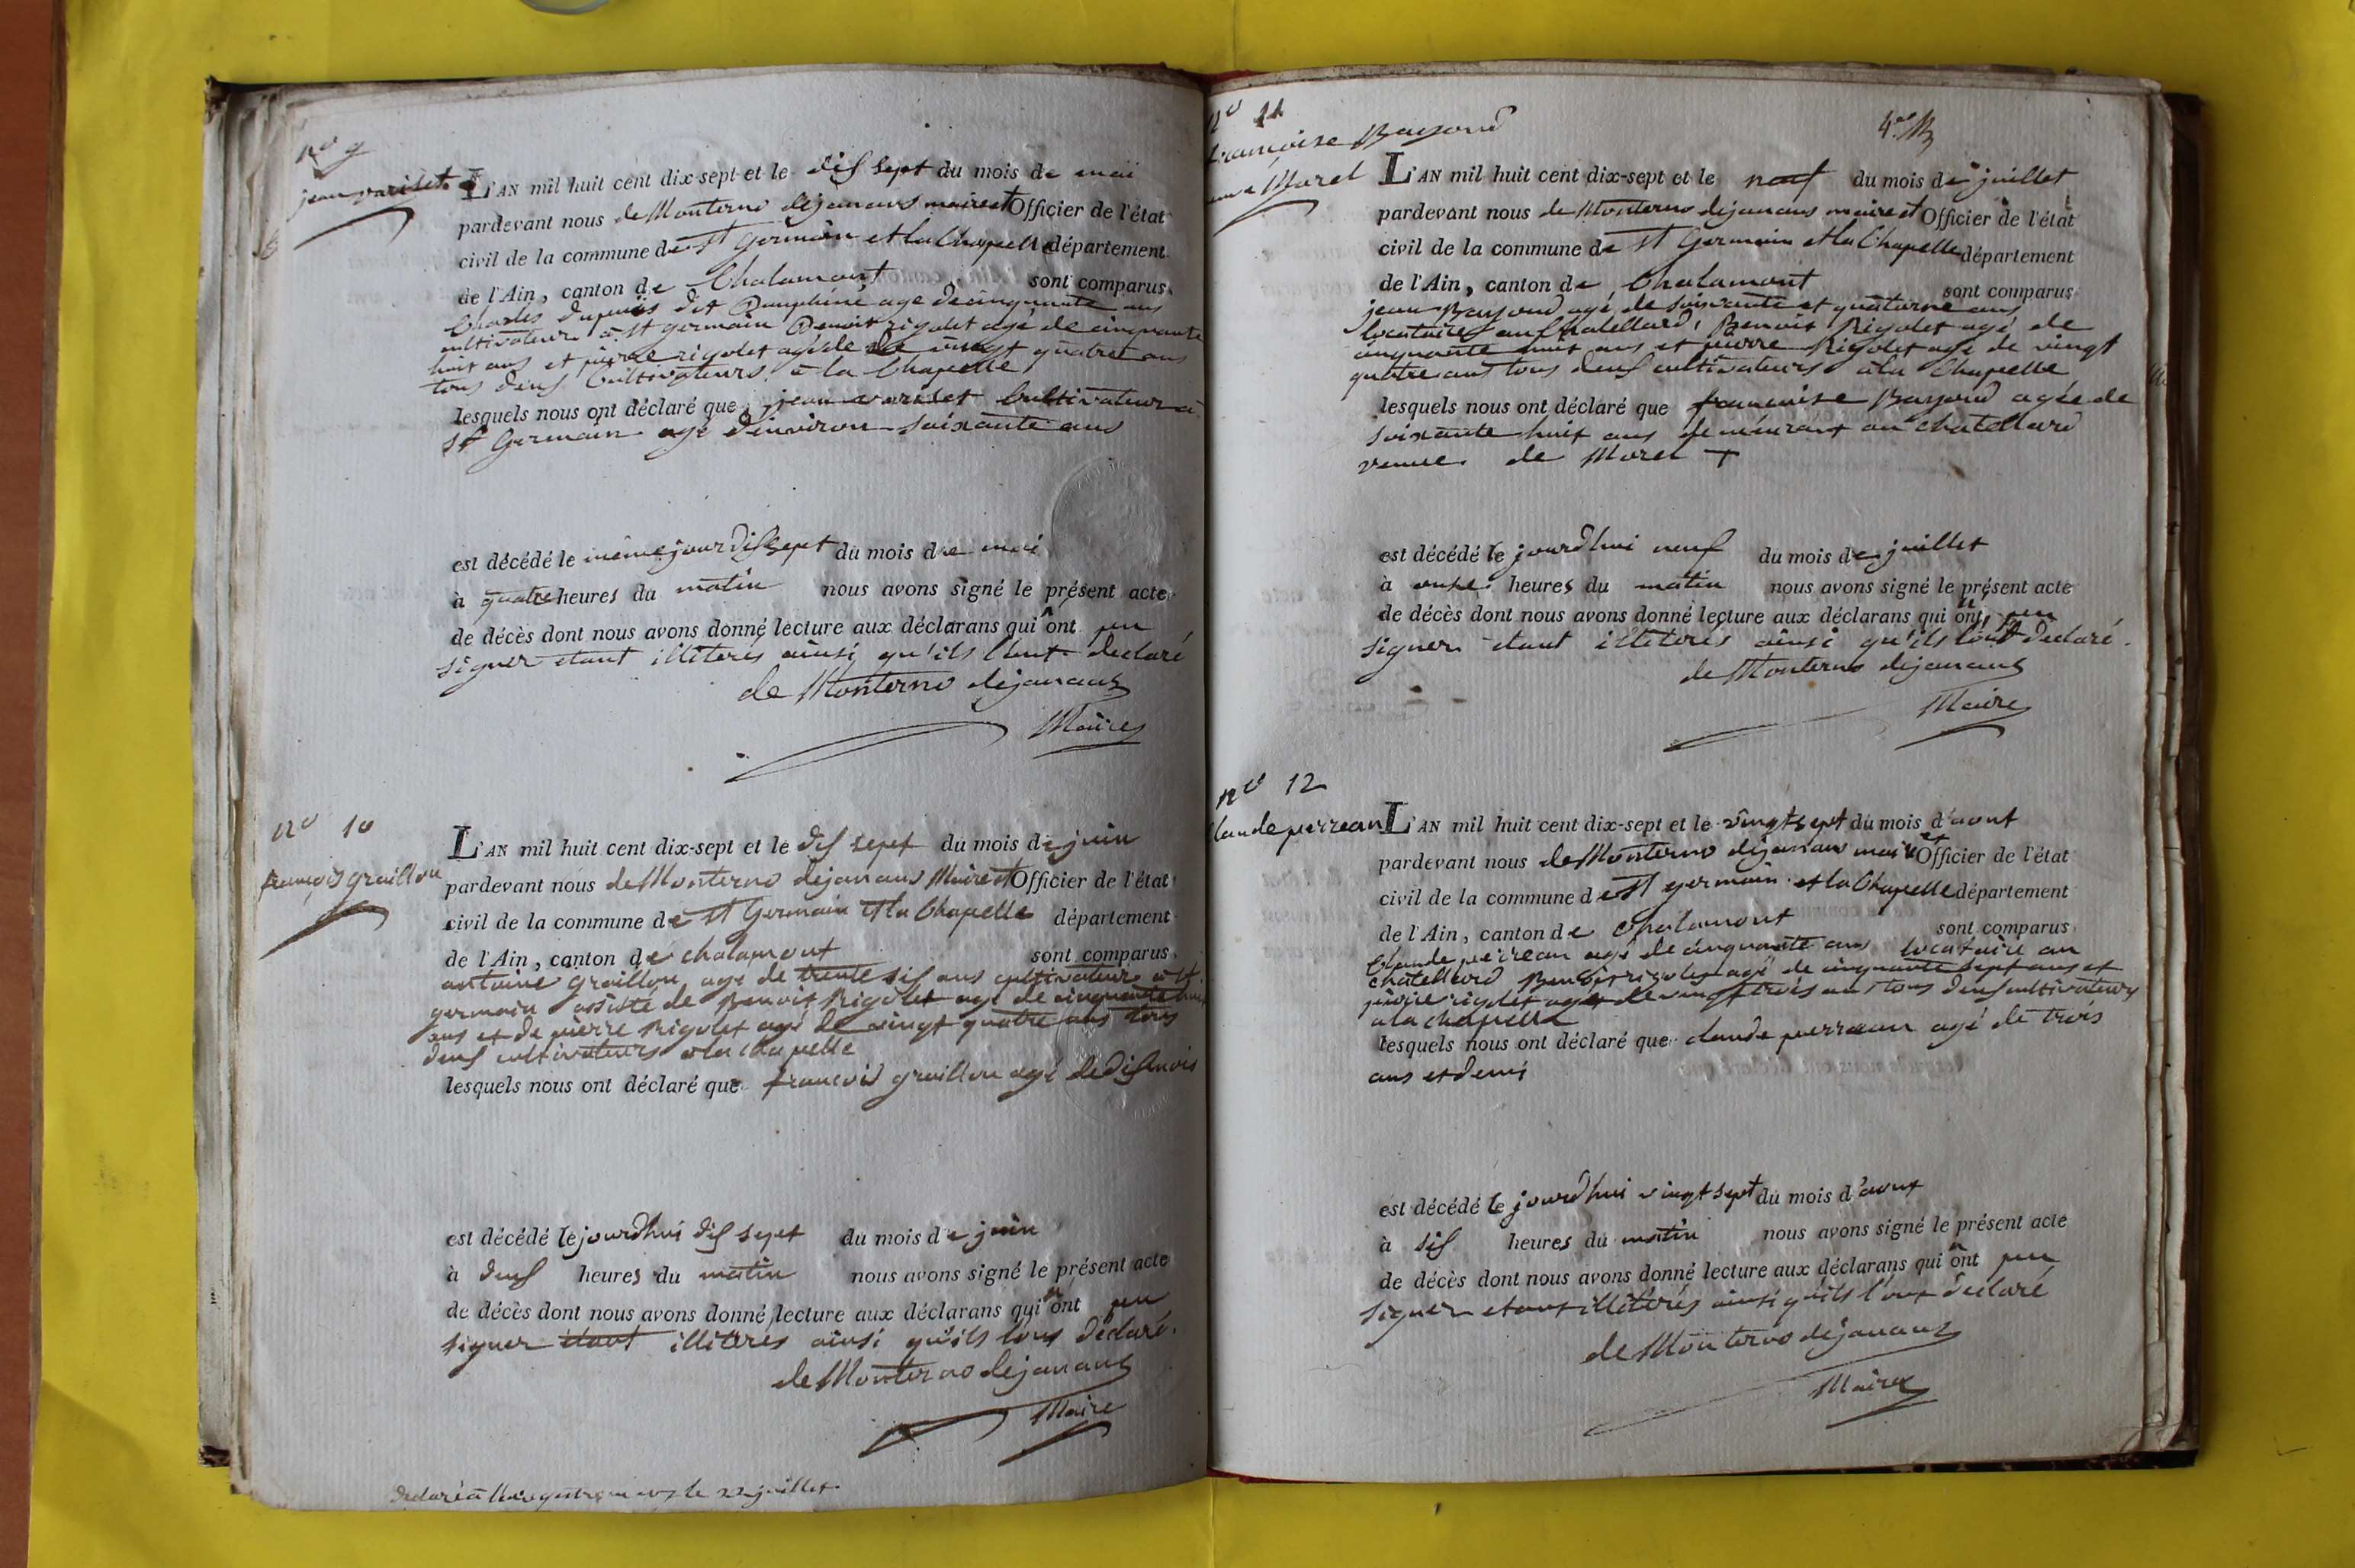 No 9
jean varilet
L'AN mil huit cent dix-sept et le dis sept du mois de mai
pardevant nous de Monterno dejanans maire et Officier de l'état
civil de la commune de st Germain et la Chapelle département
de l'Ain, canton de Chalamont sont comparus
Charles dupuis dit Dauphiné age de cinquante ans
cultivateur a st germain Benoit rigolet agé de cinquante
huit ans et pierre rigolet agé de vingt quatre ans
tous deus Cultivateurs a la Chapelle
lesquels nous ont déclaré que jean varilet Cultivateur a
st Germain agé d'environ soixante ans
est décédé le même jour dis sept du mois de mai
à quatre heures du matin nous avons signé le présent acte
de décès dont nous avons donné lecture aux déclarans qui n'ont pu
signer etant illiterés ainsi qu'ils l'ont declaré
de Monterno dejanans
Maire
No 10
françois graillon
L'AN mil huit cent dix-sept et le dis sept du mois de juin
pardevant nous de Monterno dejanans Maire et Officier de l'état
civil de la commune de st Germain et la Chapelle département
de l'Ain, canton de chalamont sont comparus
antoine graillon age de trente sis ans cultivateur a st
germain assisté de Benoit Rigolet agé de cinquante huit
ans et de pierre Rigolet agé de vingt quatre ans tous
deus cultivateurs a la chapelle
lesquels nous ont déclaré que françois graillon agé de dis mois
est décédé le jourdhui dis sept du mois de juin
à deus heures du matin nous avons signé le présent acte
de décès dont nous avons donné lecture aux déclarans qui n'ont pu
signer etant illiterés ainsi qu'ils l'ont déclaré.
de Monterno dejanans
Maire
declaré a le 22 juillet
4e
No 11
francoise Bayond
Morel
L'AN mil huit cent dix-sept et le neuf du mois de juillet
pardevant nous de Monterno dejanans maire et Officier de l'état
civil de la commune de st Germain et la Chapelle département
de l'Ain, canton de Chalamont sont comparus
jean Bayond agé de soixante et quatorze ans
locataire au Chatellard, Benoit Rigolet agé de
cinquante huit ans et pierre Rigolet agé de vingt
quatre ans tous deus cultivateurs a la Chapelle
lesquels nous ont déclaré que francoise Bayond agée de
soixante huit ans demeurant au chatellard
veuve de Morel +
est décédé le jourdhui neuf du mois de juillet
à onze heures du matin nous avons signé le présent acte
de décès dont nous avons donné lecture aux déclarans qui n'ont pu
signer etant illiterés ainsi qu'ils l'ont déclaré.
de Monterno dejanans
Maire
No 12
Claude perreau
L'AN mil huit cent dix-sept et le vingt sept du mois d'aout
pardevant nous de Monterno dejanans maire et Officier de l'état
civil de la commune de st germain et la Chapelle département
de l'Ain, canton de Chalamont sont comparus
Claude perreau agé de cinquante ans locataire au
chatellard Benoit rigolet agé de cinquante sept ans et
pierre rigolet agé de vingt trois ans tous deus cultivateurs
a la chapelle
lesquels nous ont déclaré que claude perreau agé de trois
ans et demi
est décédé le jourdhui vingt sept du mois d'aout
à sis heures du matin nous avons signé le présent acte
de décès dont nous avons donné lecture aux déclarans qui n'ont pu
signer etant illiterés ainsi qu'ils l'ont declaré
de Monterno dejanans
Maire